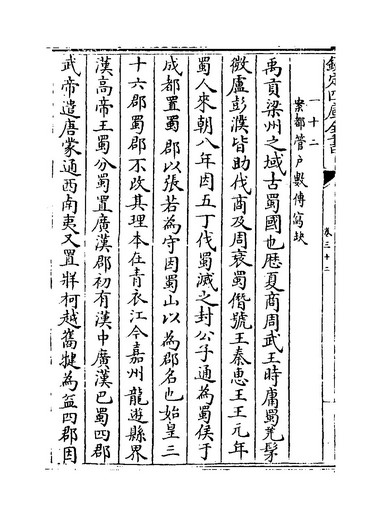 欽定四庫全書
卷三十二
一十二
案都管户數傳寫缺
禹貢梁州之域古蜀國也歴夏商周武王時庸蜀羌髳
微盧彭濮皆助伐商及周衰蜀僭號王秦恵王王元年
蜀人來朝八年因五丁伐蜀滅之封公子通為蜀侯于
成都置蜀郡以張若為守因蜀山以為郡名也始皇三
十六郡蜀郡不改其理本在青衣江今嘉州龍遊縣界
漢高帝王蜀分蜀置廣漢郡初有漢中廣漢巴蜀四郡
武帝遣唐蒙通西南夷又置牂柯越巂犍為益四郡因